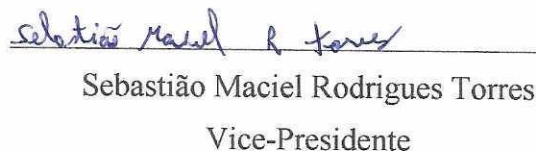 Sebastião Maciel R Torres
Sebastião Maciel Rodrigues Torres
Vice-Presidente